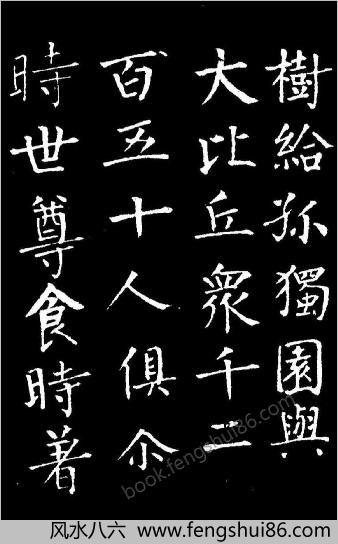 樹給孤獨園與
大比丘眾千二
百五十人俱尒
時世尊食時著
book.fengshui86.com
风水八六 www.fengshui86.com